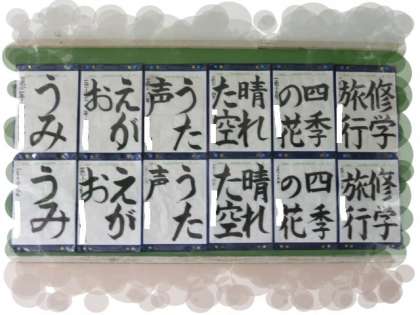 修学
旅行
四季
の花
晴れ
た空
うた
声
えが
お
うみ
修学
旅行
四季
の花
晴れ
た空
うた
声
えが
お
うみ